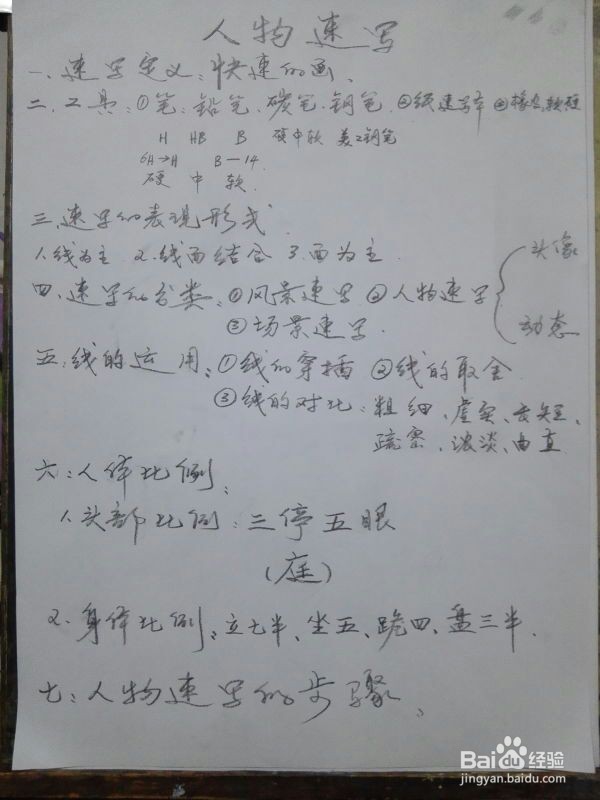 人物速写
一、速写定义：快速的画、
二、工具：①笔：铅笔、碳笔、钢笔 ②纸速写本 ③橡皮、软硬
H HB B 硬中软 美工钢笔
6H→H B—14
硬 中 软
三、速写的表现形式
1.线为主 2.线面结合 3.面为主
四、速写的分类：①风景速写 ②人物速写 头像
③场景速写 动态
五、线的运用：①线的穿插 ②线的取舍
③线的对比：粗细、虚实、长短、
疏密、浓淡、曲直
六：人体比例：
1.头部比例：三停五眼
（庭）
2.身体比例：立七半、坐五、跪四、盘三半.
七：人物速写的步骤、
Baidu经验
jingyan.baidu.com